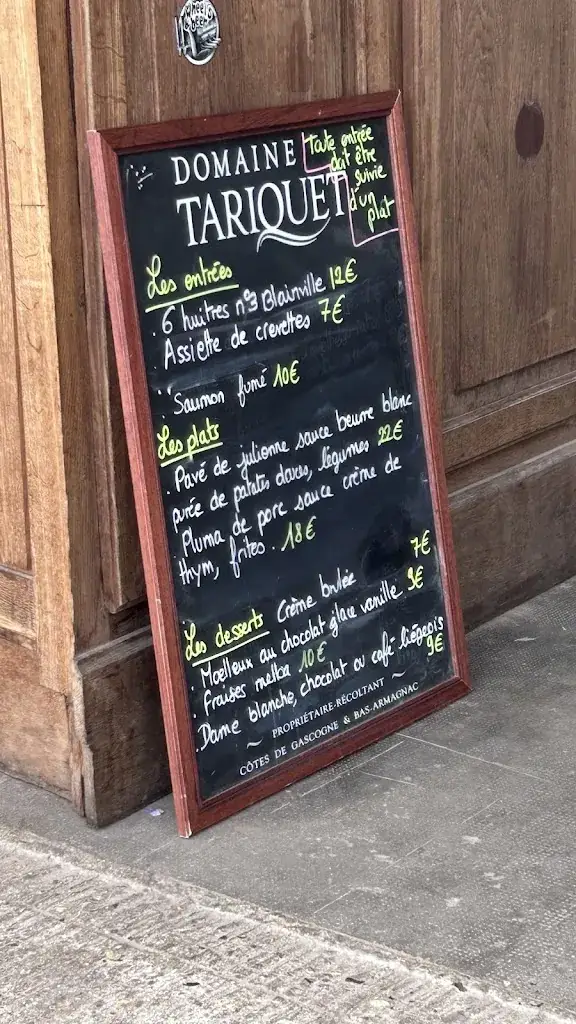 DOMAINE
TARIQUET
Toute entrée
doit être
suivie
d'un
plat
Les entrées
. 6 huitres n°3 Blainville 12€
. Assiette de crevettes 7€
. Saumon fumé 10€
Les plats
. Pavé de julienne sauce beurre blanc
purée de patates douces, légumes 22€
. Pluma de porc sauce crème de
thym, frites. 18€
Les desserts Crème brulée 7€
. Moelleux au chocolat glace vanille 9€
. Fraises melba 10€
. Dame blanche, chocolat ou café liégeois
9€
~ PROPRIÉTAIRE-RÉCOLTANT ~
CÔTES DE GASCOGNE & BAS-ARMAGNAC